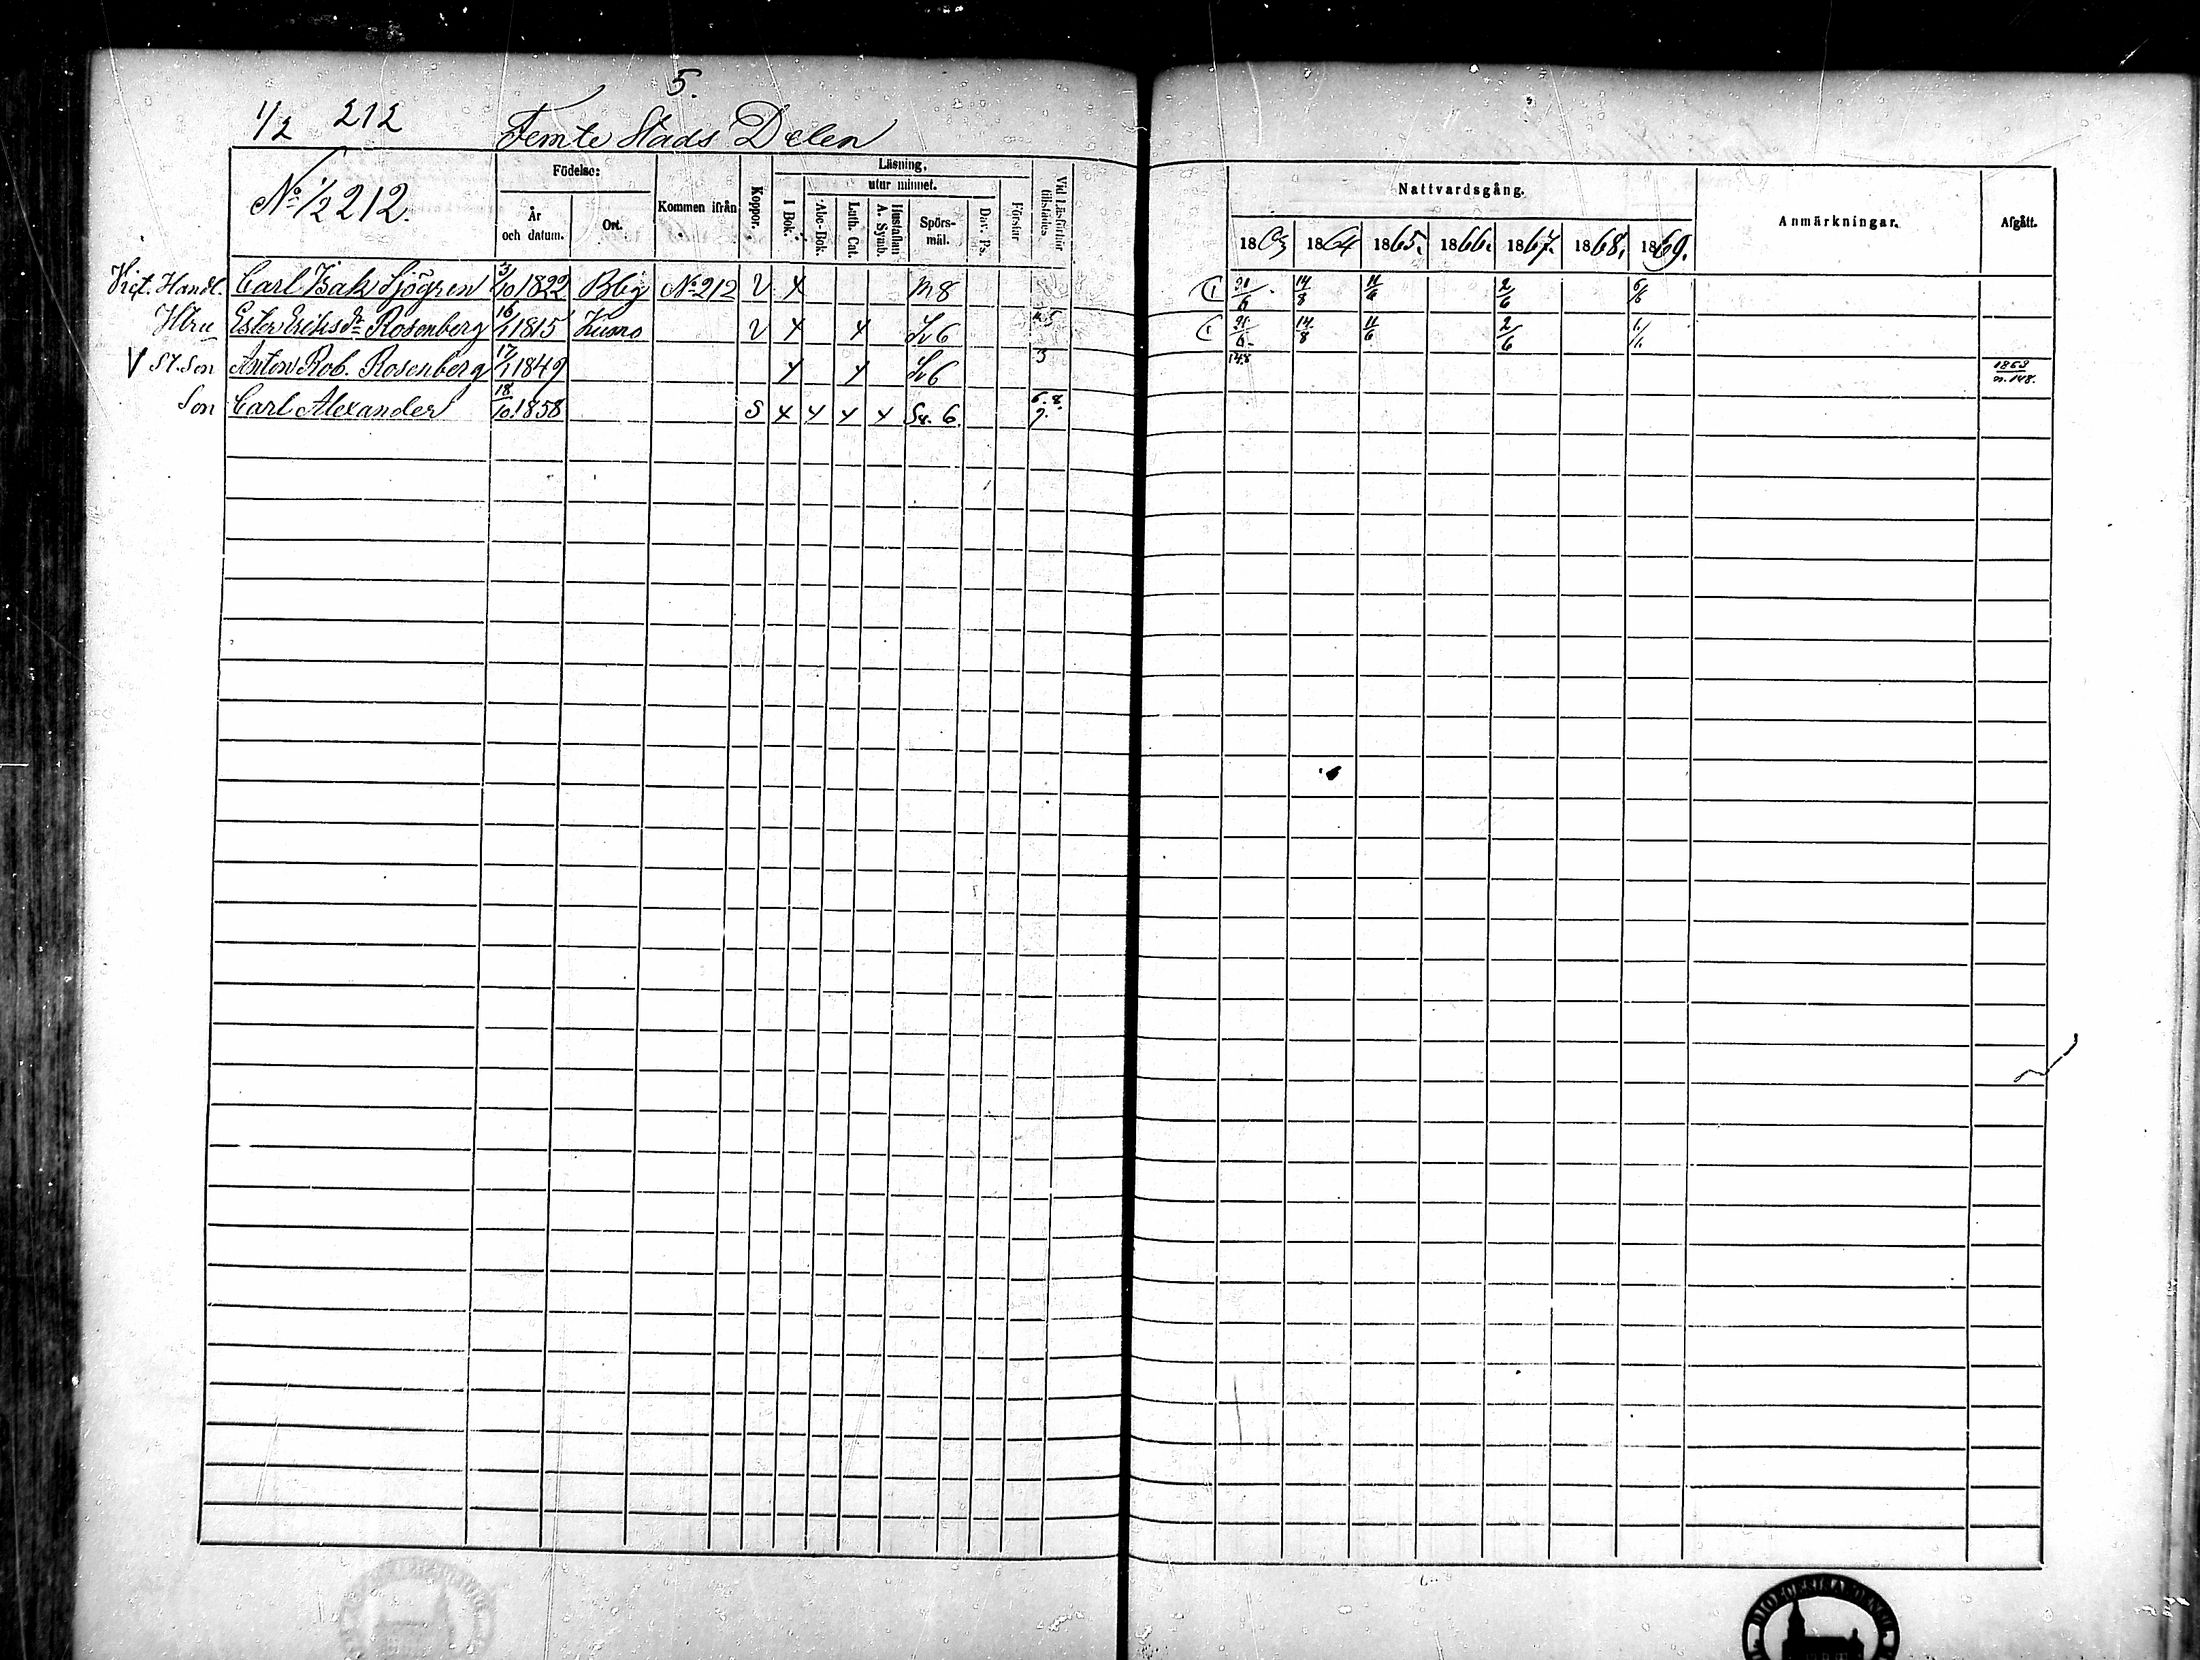 5.
1/2 212 Femte Stads Delen
No 1/2 212.
Födelse: År och datum. Ort.
Kommen ifrån
Koppor.
Läsning,
utur minnet.
I Bok. Abc-Bok. Luth. Cat. Hustaflan A. Symb. Spörs-mål. Dav. Ps. Förstår
Vid Läsförhör tillstädes
Nattvardsgång.
1863 1864 1865. 1866. 1867. 1868. 1869.
Anmärkningar.
Afgått.
Vict. Handl. Carl Isak Sjögren 3/10 1822 Bbg No 212 V x m8 14/8 11/6 2/6 6/6
Htru Ester Eriks dr Rosenberg 16/1 1815 Kumo V x x Sv 6 14/8 11/6 2/6
V St. Son Anton Rob. Rosenberg 17/1 1849 x x Sv 6 3 148 1863 n. 148.
Son Carl Alexander 18/10 1858 S x x x x Sv. 6. 6. 8. 9.